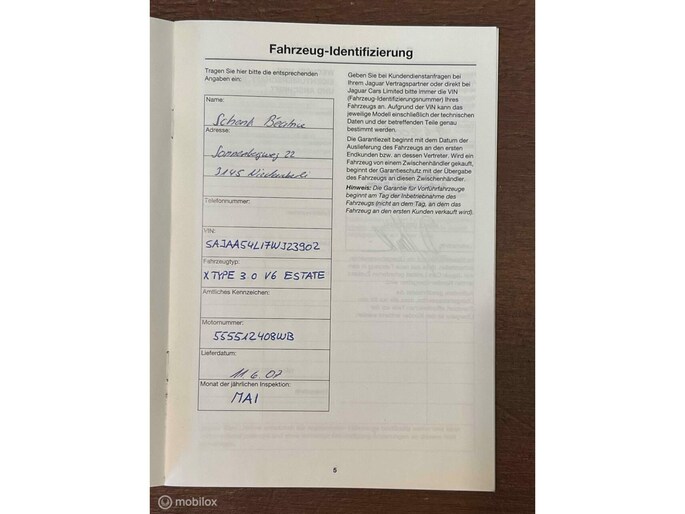 Fahrzeug-Identifizierung
Tragen Sie hier bitte die entsprechenden
Angaben ein:
Name:
Schenk Béatrice
Adresse:
22
3145
Telefonnummer:
VIN:
SAJAA54L17WJ23902
Fahrzeugtyp:
X TYPE 3.0 V6 ESTATE
Amtliches Kennzeichen:
Motornummer:
555512408WB
Lieferdatum:
11.6.07
Monat der jährlichen Inspektion:
MAI
Geben Sie bei Kundendienstanfragen bei
Ihrem Jaguar Vertragspartner oder direkt bei
Jaguar Cars Limited bitte immer die VIN
(Fahrzeug-Identifizierungsnummer) Ihres
Fahrzeugs an. Aufgrund der VIN kann das
jeweilige Modell einschließlich der technischen
Daten und der betreffenden Teile genau
bestimmt werden.
Die Garantiezeit beginnt mit dem Datum der
Auslieferung des Fahrzeugs an den ersten
Endkunden bzw. an dessen Vertreter. Wird ein
Fahrzeug von einem Zwischenhändler gekauft,
beginnt der Garantieschutz mit der Übergabe
des Fahrzeugs an diesen Zwischenhändler.
Hinweis: Die Garantie für Vorführfahrzeuge
beginnt am Tag der Inbetriebnahme des
Fahrzeugs (nicht an dem Tag, an dem das
Fahrzeug an den ersten Kunden verkauft wird).
5
mobilox